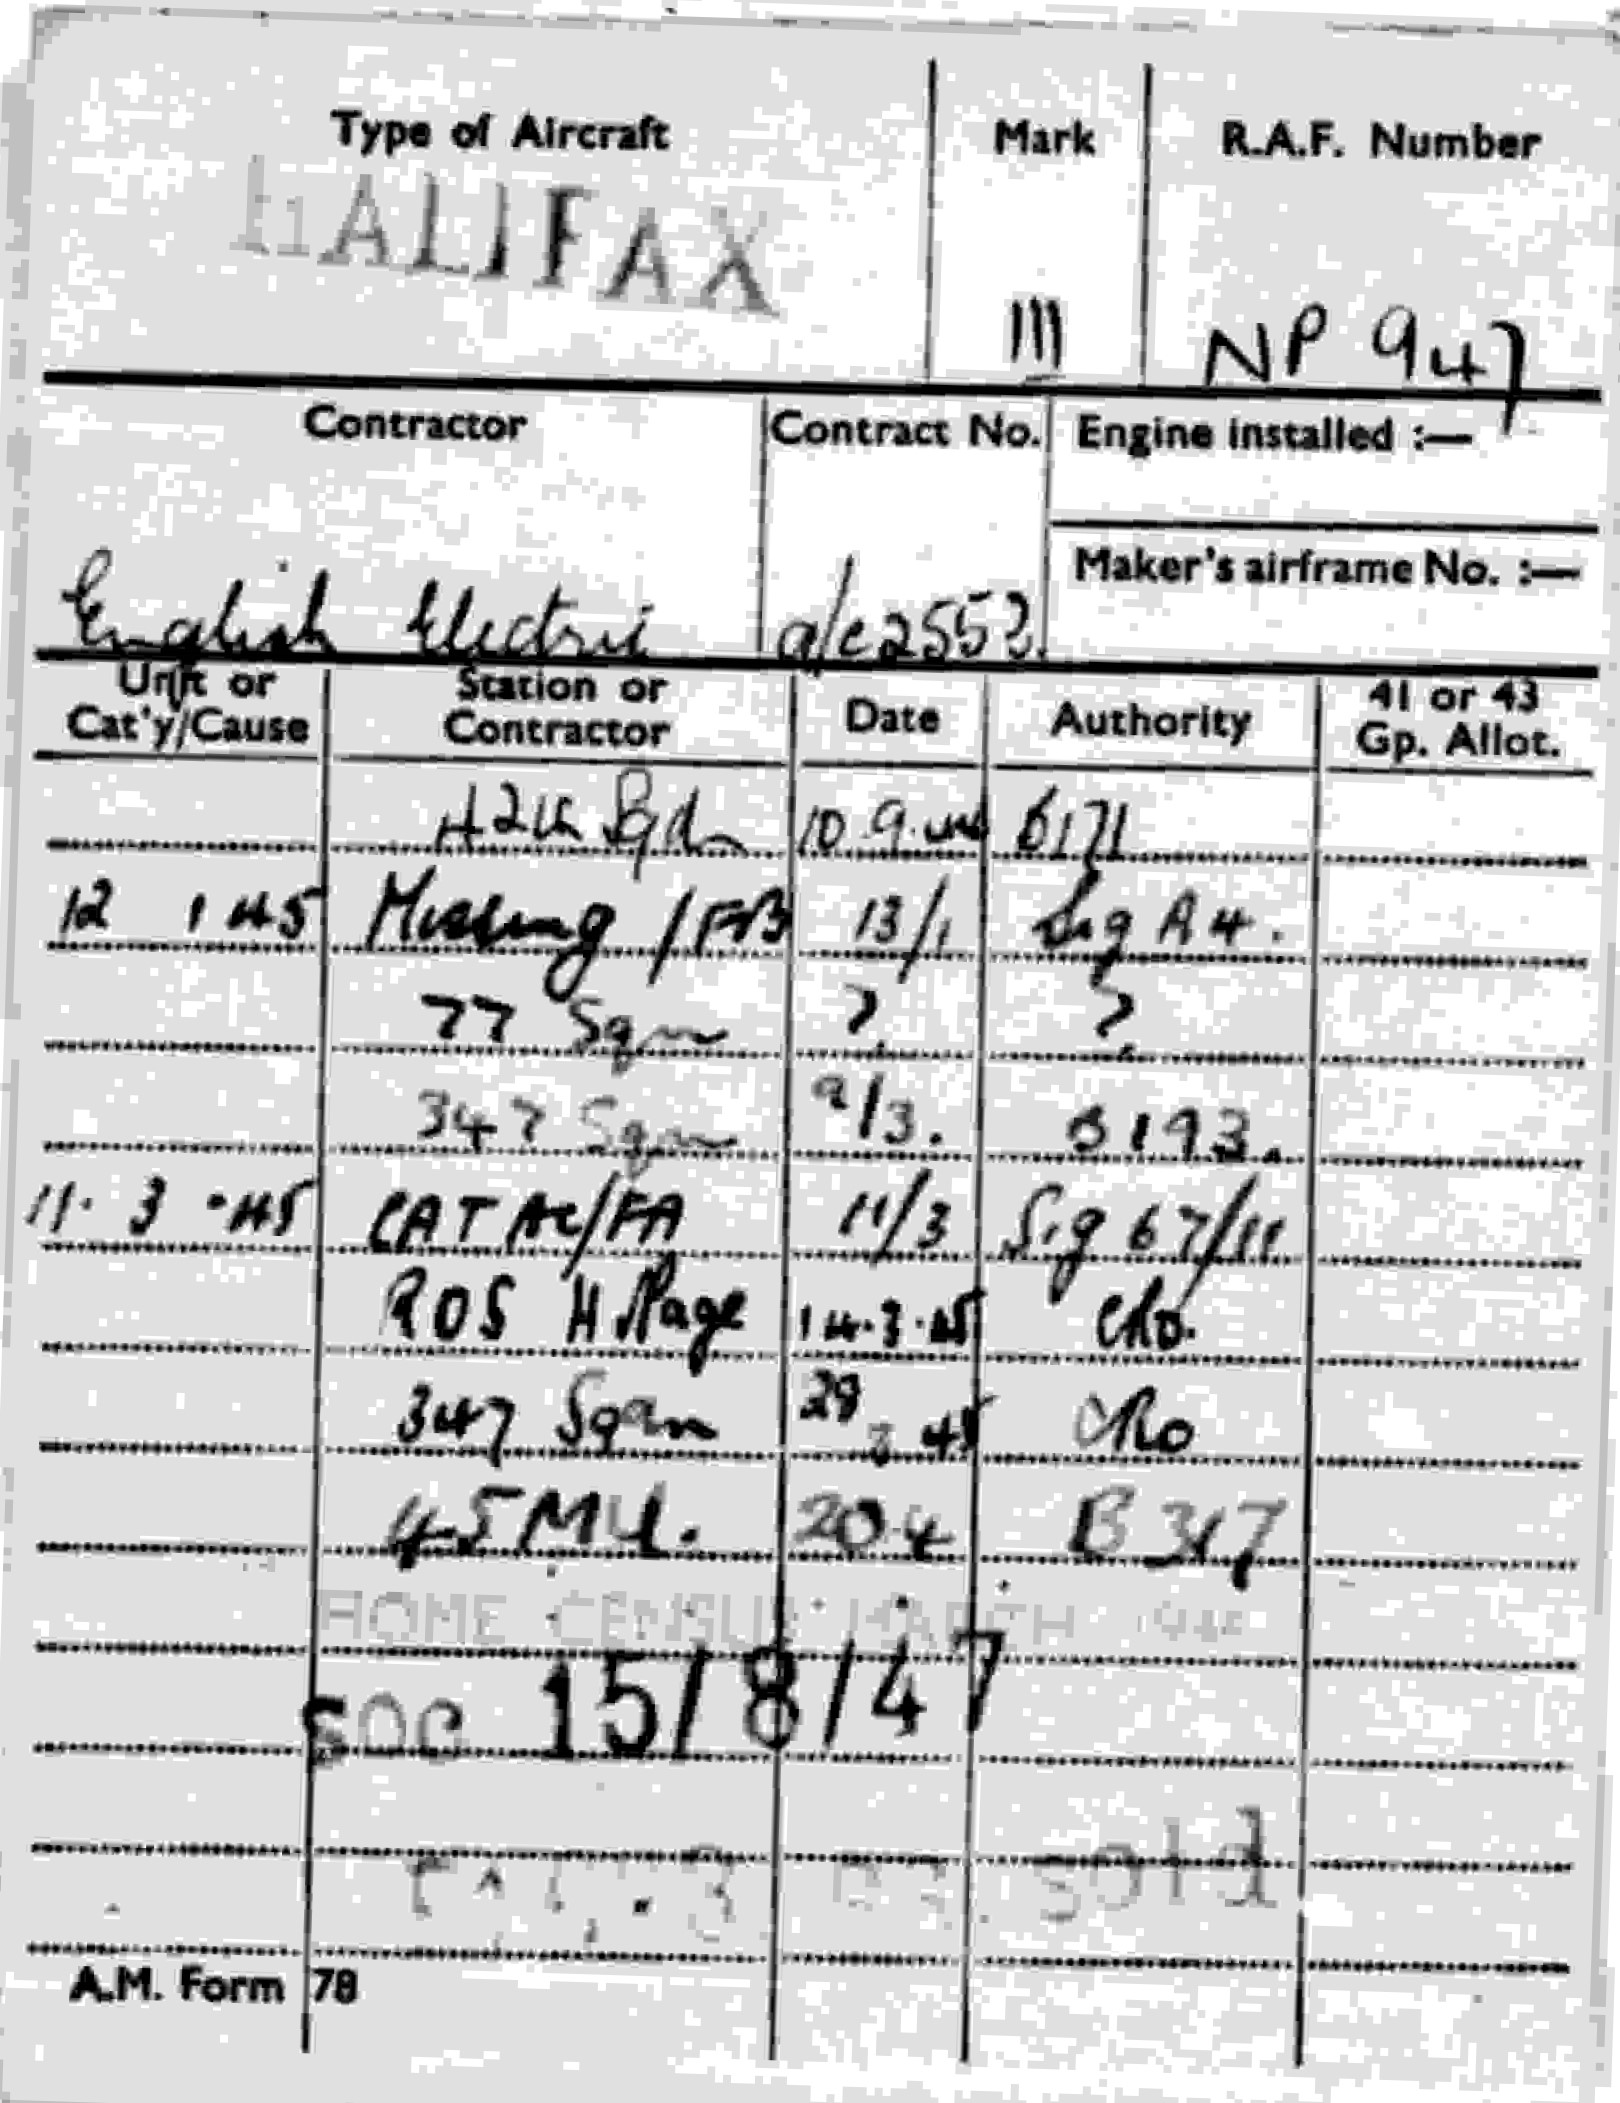 Type of Aircraft Mark R.A.F. Number
HALIFAX III NP 947
Contractor Contract No. Engine installed :—
Maker's airframe No. :—
English Electric a/c 255?
Unit or Cat'y/Cause Station or Contractor Date Authority 41 or 43 Gp. Allot.
424 Sqdn 10.9. B171
12 1 45 Missing /FB 13/1 Sig A4.
77 Sqn ? ?
347 Sqn 9/3. B193.
11.3.45 CAT Ac/FA 11/3 Sig 67/11
ROS H Page 14.3.45 CRO.
347 Sqdn 28 3 45 CRO
45 MU. 20.4 B347
HOME CENSUS MARCH 1946
SOC 15/8/47
sold
A.M. Form 78